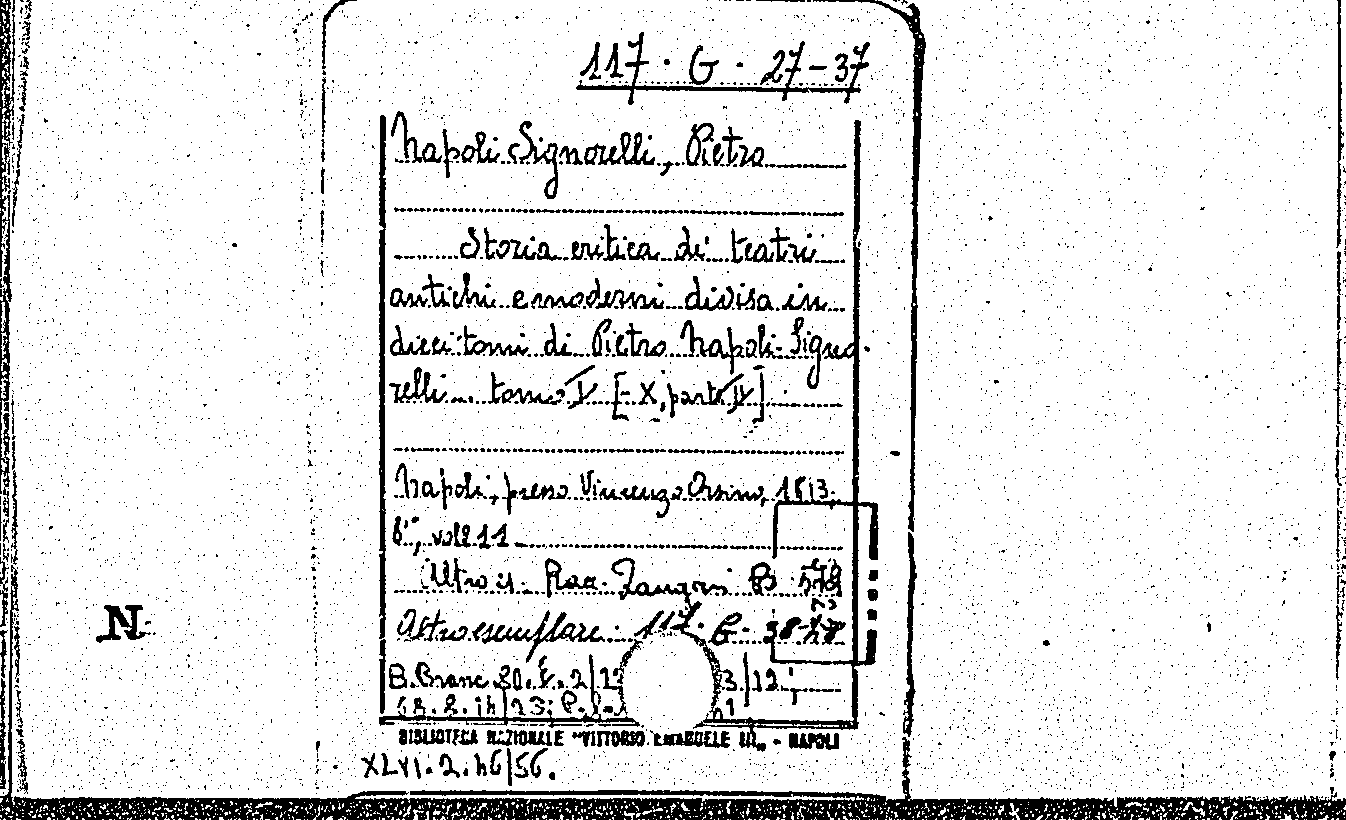 117 · G · 27-37
Napoli Signorelli, Pietro
Storia critica de' teatri
antichi e moderni divisa in
dieci tomi di Pietro Napoli-Signo-
relli... tomo I [-X, parte II]
Napoli, presso Vincenzo Orsino, 1813,
8°, voll 11
Altro es. Rac. Zangari B
Altro esemplare 117. G. 38-48
N
B. Branc. 80. E. 2/ 3/12;
BIBLIOTECA NAZIONALE "VITTORIO EMANUELE III" - NAPOLI
XLVI. 2. 46/56.